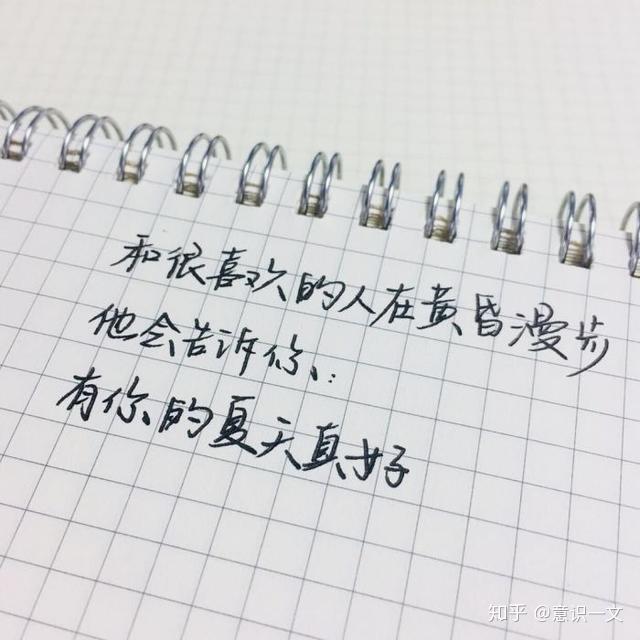 和很喜欢的人在黄昏漫步
他会告诉你:
有你的夏天真好
知乎 @意识一文